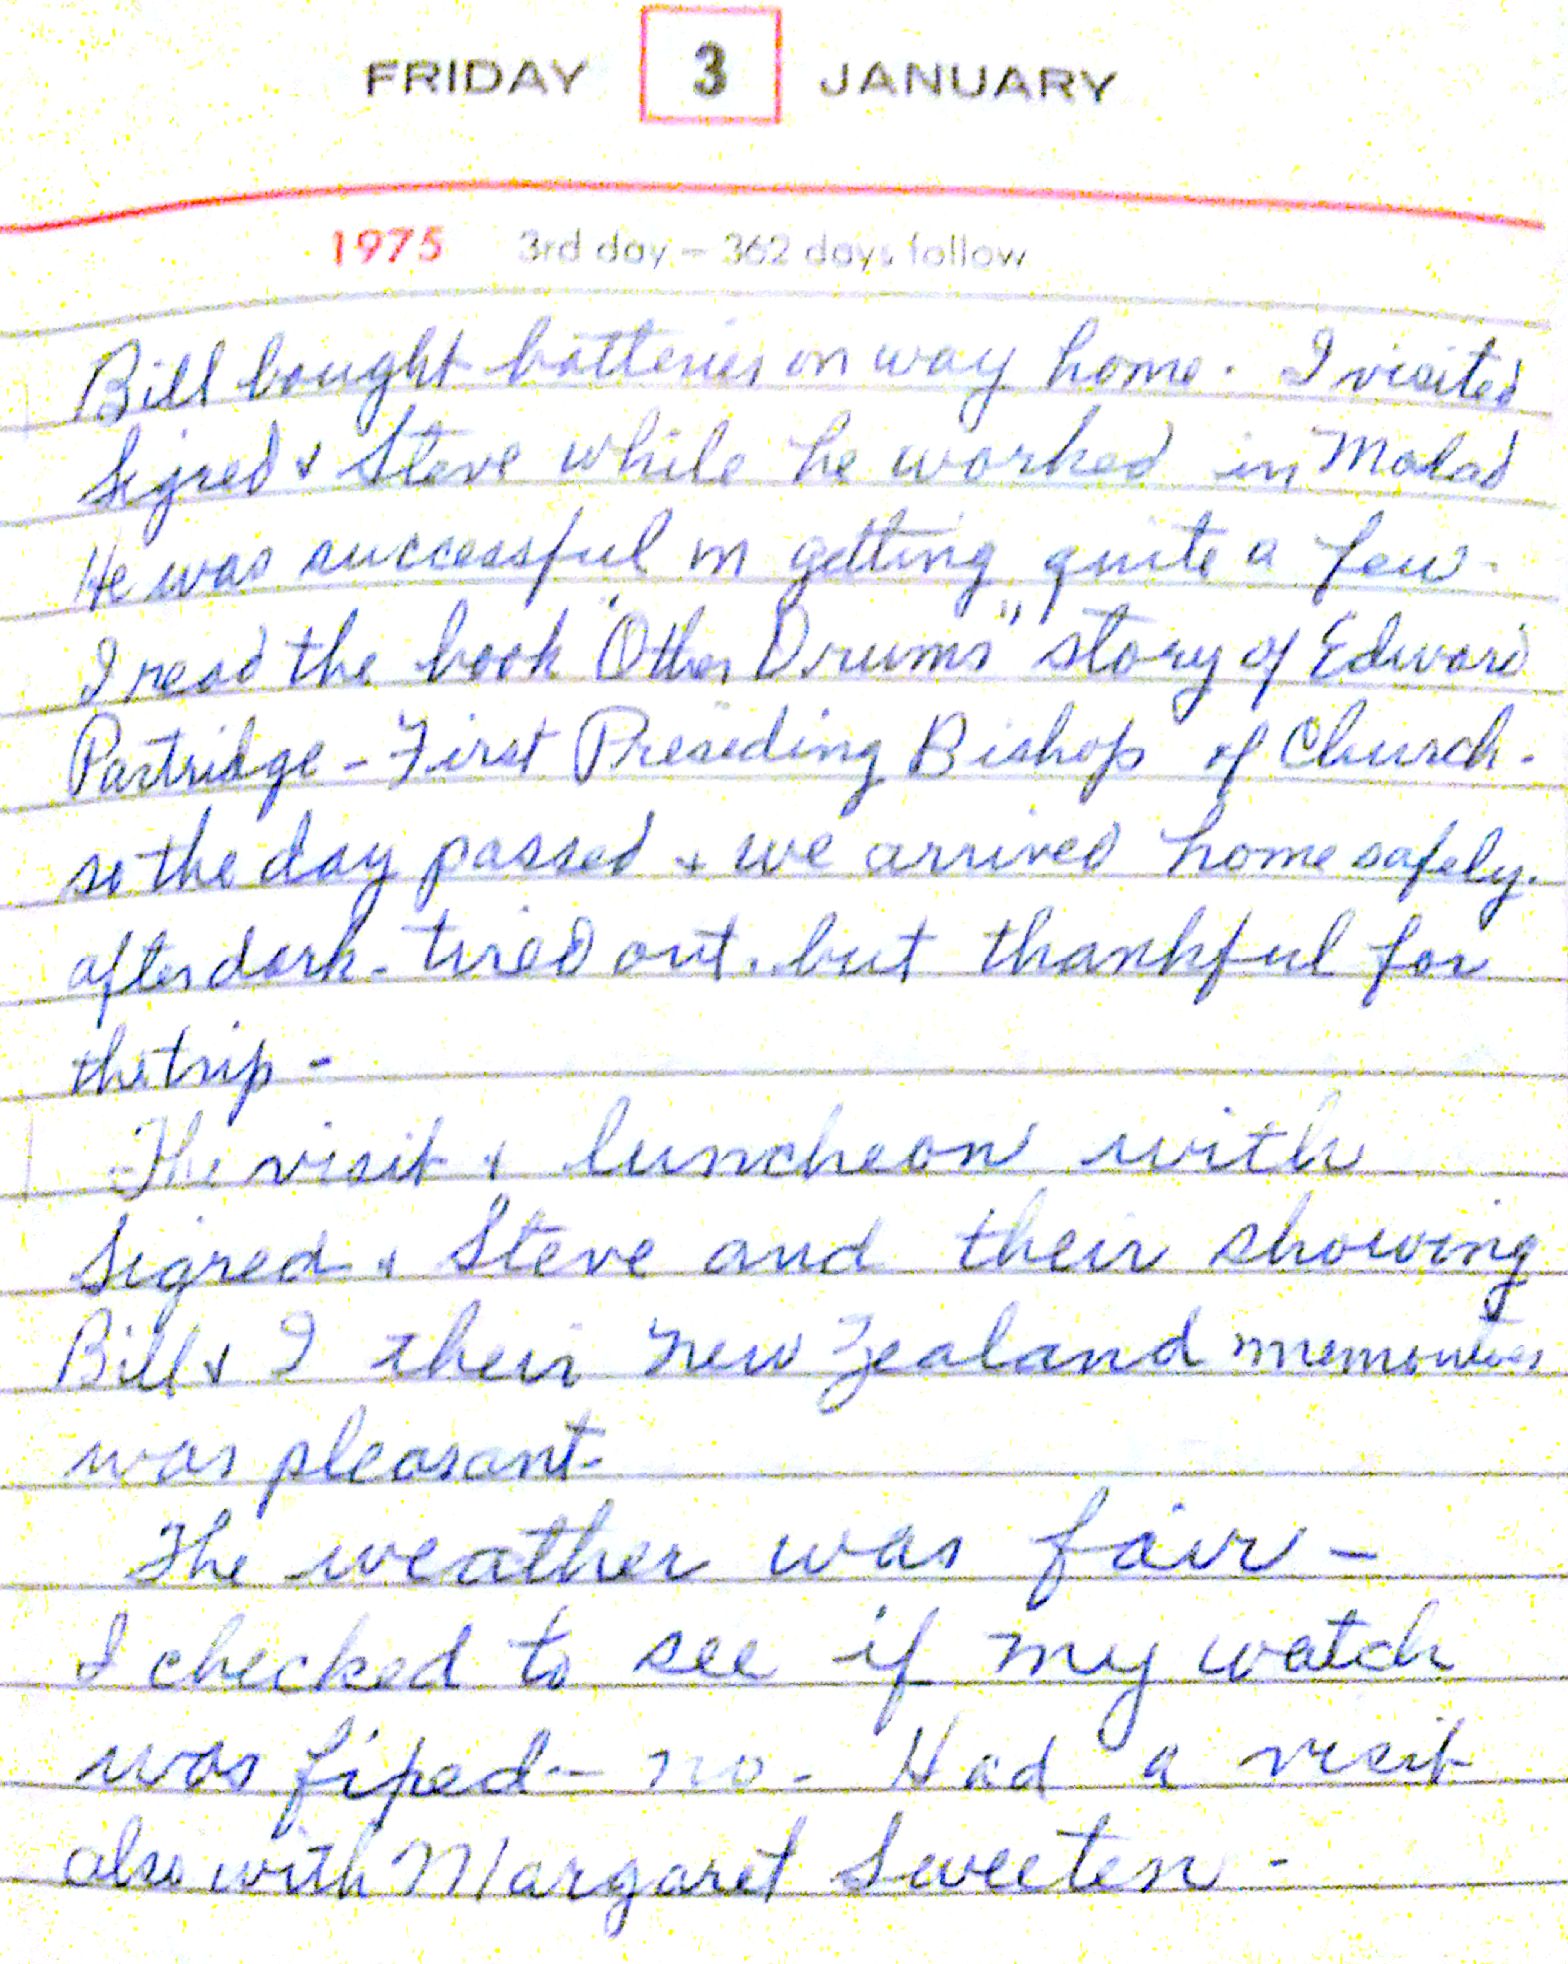 FRIDAY 3 JANUARY
1975 3rd day – 362 days follow
Bill bought batteries on way home. I visited
Sigred & Steve while he worked in Malad
He was successful in getting quite a few.
I read the book "Other Drums" story of Edward
Partridge - First Preseding Bishop of Church.
so the day passed & we arrived home safely.
after dark - tired out. but thankful for
the trip -
The visit & luncheon with
Sigred & Steve and their showing
Bill & I their New Zealand memories
was pleasant-
The weather was fair -
I checked to see if my watch
was fixed - no - Had a visit
also with Margaret Sweeten -